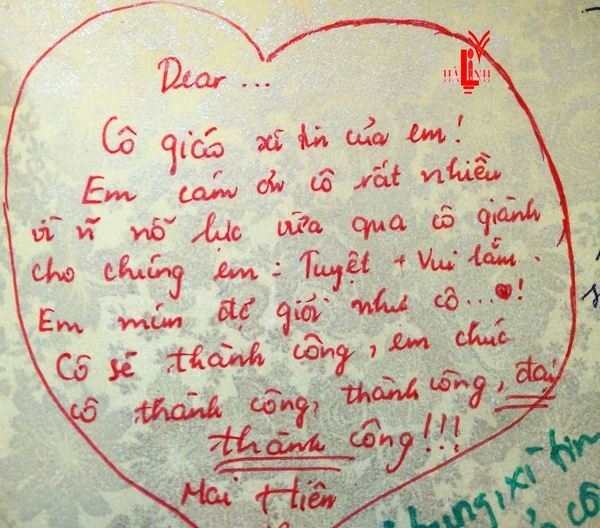 Dear ...
HÀ LINH
Cô giáo xì tin của em!
Em cám ơn cô rất nhiều
vì ~ nỗ lực vừa qua cô giành
cho chúng em : Tuyệt + Vui lắm.
Em mún đc giỏi như cô...♥!
Cô sẽ thành công, em chúc
cô thành công, thành công, đại
thành công!!!
Mai Hiên
xì tin
cô